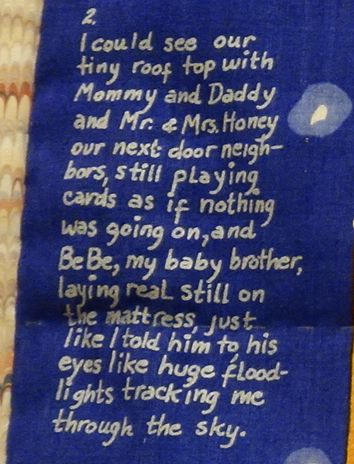 2.
I could see our
tiny roof top with
Mommy and Daddy
and Mr. & Mrs. Honey
our next door neigh-
bors, still playing
cards as if nothing
was going on, and
BeBe, my baby brother,
laying real still on
the mattress, just
like I told him to, his
eyes like huge flood-
lights tracking me
through the sky.